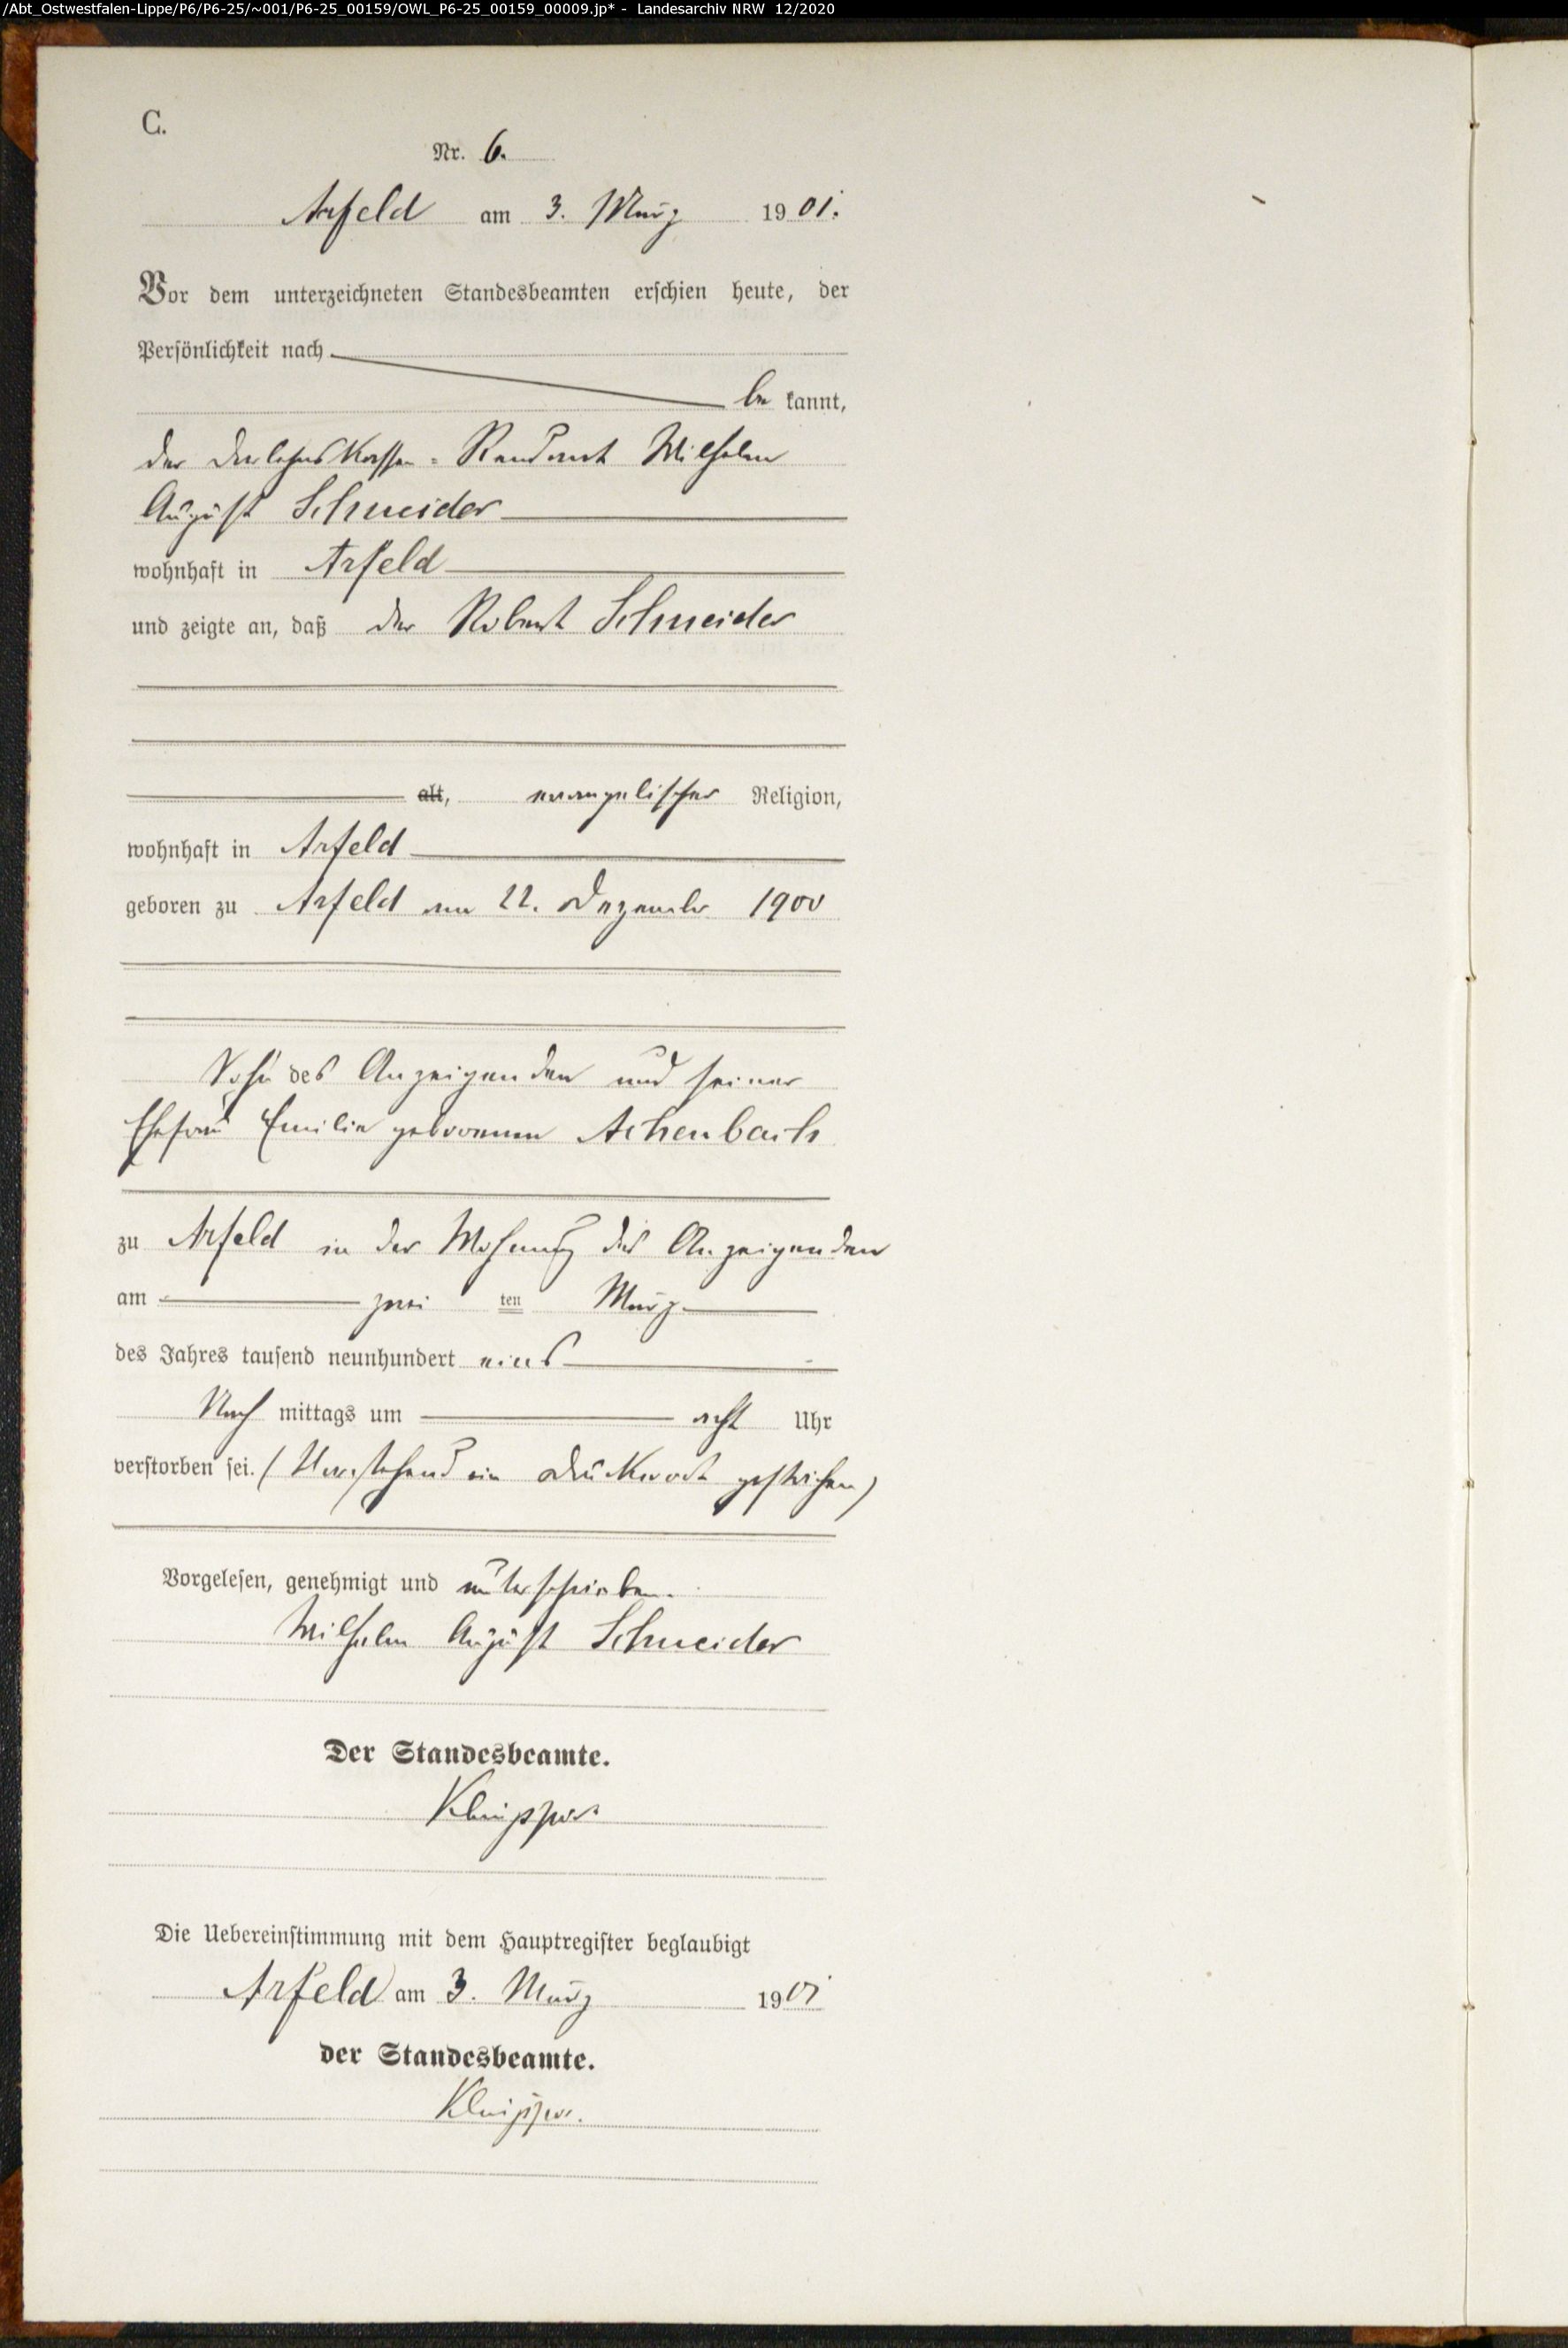 /Abt_Ostwestfalen-Lippe/P6/P6-25/~001/P6-25_00159/OWL_P6-25_00159_00009.jp* - Landesarchiv NRW 12/2020
C.
Nr. 6.
Arfeld am 3. März 1901.
Vor dem unterzeichneten Standesbeamten erschien heute, der
Persönlichkeit nach
be kannt,
der Darlehns Kassen-Rendant Wilhelm
August Schneider
wohnhaft in Arfeld
und zeigte an, daß der Robert Schneider
alt, evangelischer Religion,
wohnhaft in Arfeld
geboren zu Arfeld am 22. Dezember 1900
Sohn des Anzeigenden und seiner
Ehefrau Emilie geborenen Achenbach
zu Arfeld in der Wohnung des Anzeigenden
am zwei ten März
des Jahres tausend neunhundert eins
Nach mittags um acht Uhr
verstorben sei. (Vorstehend ein Druckwort gestrichen)
Vorgelesen, genehmigt und unterschrieben.
Wilhelm August Schneider
Der Standesbeamte.
Die Uebereinstimmung mit dem Hauptregister beglaubigt
Arfeld am 3. März 1901
der Standesbeamte.